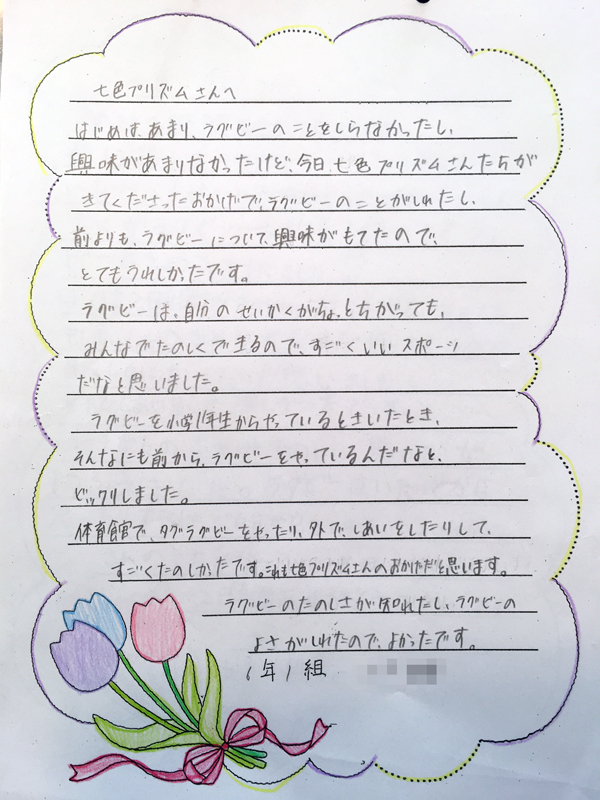 七色プリズムさんへ
はじめは、あまり、ラグビーのことをしらなかったし、
興味があまりなかったけど、今日、七色プリズムさんたちが
きてくださったおかげで、ラグビーのことがしれたし、
前よりも、ラグビーについて、興味がもてたので、
とてもうれしかったです。
ラグビーは、自分のせいかくがちょっとちがっても、
みんなでたのしくできるので、すごくいいスポーツ
だなと思いました。
ラグビーを小学1年生からやっているときいたとき、
そんなにも前から、ラグビーをやっているんだなと、
ビックリしました。
体育館で、タグラグビーをやったり、外で、しあいをしたりして、
すごくたのしかったです。これも七色プリズムさんのおかげだと思います。
ラグビーのたのしさが知れたし、ラグビーの
よさがしれたので、よかったです。
1年1組